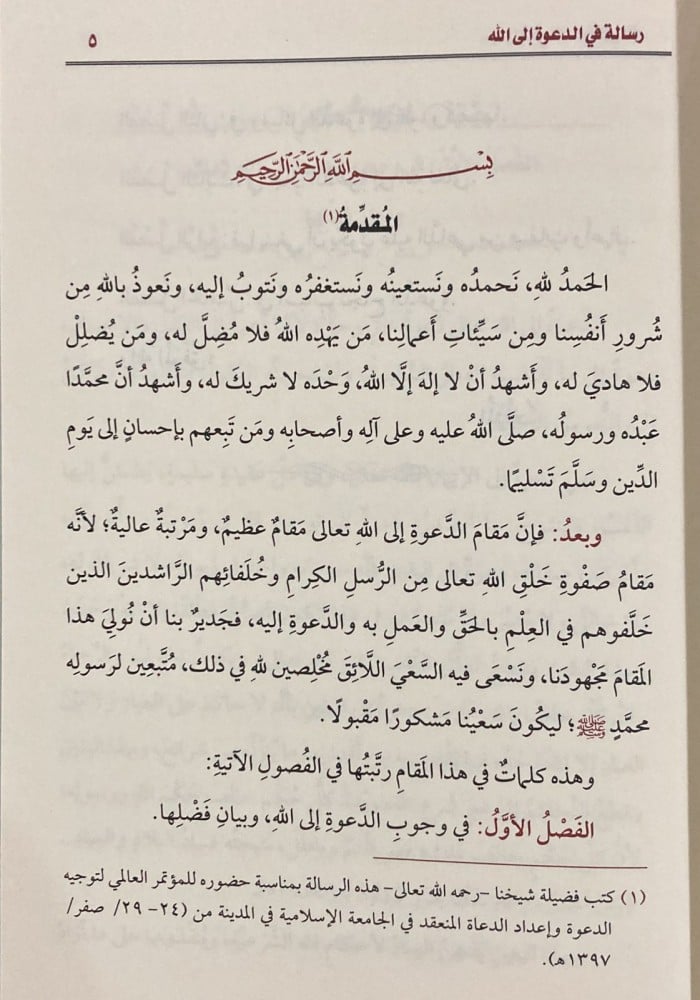 رسالة في الدعوة إلى الله ٥
بِسْمِ اللَّهِ الرَّحْمَٰنِ الرَّحِيمِ
المُقدِّمةُ(١)
الحَمدُ للهِ، نَحمدُه ونَستعينُه ونَستغفرُه ونَتوبُ إليه، ونَعوذُ باللهِ مِن
شُرورِ أَنفُسِنا ومِن سَيِّئاتِ أَعمالِنا، مَن يَهْدِه اللهُ فلا مُضِلَّ له، ومَن يُضلِلْ
فلا هاديَ له، وأَشهدُ أنْ لا إلهَ إلَّا اللهُ، وَحْدَه لا شريكَ له، وأَشهدُ أنَّ محمَّدًا
عَبْدُه ورسولُه، صلَّى اللهُ عليه وعلى آلِه وأصحابِه ومَن تَبِعهم بإحسانٍ إلى يَومِ
الدِّين وسَلَّمَ تَسْليمًا.
وبعدُ: فإنَّ مَقامَ الدَّعوةِ إلى اللهِ تعالى مَقامٌ عظيمٌ، ومَرْتبةٌ عاليةٌ؛ لأنَّه
مَقامُ صَفْوةِ خَلْقِ اللهِ تعالى مِن الرُّسلِ الكِرامِ وخُلَفائِهم الرَّاشدينَ الذين
خَلَّفوهم في العِلْمِ بالحَقِّ والعَملِ به والدَّعوةِ إليه، فجَديرٌ بنا أنْ نُوليَ هذا
المَقامَ مَجْهودَنا، ونَسْعَى فيه السَّعْيَ اللَّائِقَ مُخْلِصين للهِ في ذلك، مُتَّبعِين لرَسولِه
محمَّدٍ ﷺ؛ ليكُونَ سَعْيُنا مَشكورًا مَقْبولًا.
وهذه كلماتٌ في هذا المَقامِ رتَّبتُها في الفُصولِ الآتيةِ:
الفَصْلُ الأوَّلُ: في وجوبِ الدَّعوةِ إلى اللهِ، وبيانِ فَضْلِها.
(١) كتب فضيلة شيخنا -رحمه الله تعالى- هذه الرسالة بمناسبة حضوره للمؤتمر العالمي لتوجيه
الدعوة وإعداد الدعاة المنعقد في الجامعة الإسلامية في المدينة من (٢٤- ٢٩/ صفر/
١٣٩٧هـ).